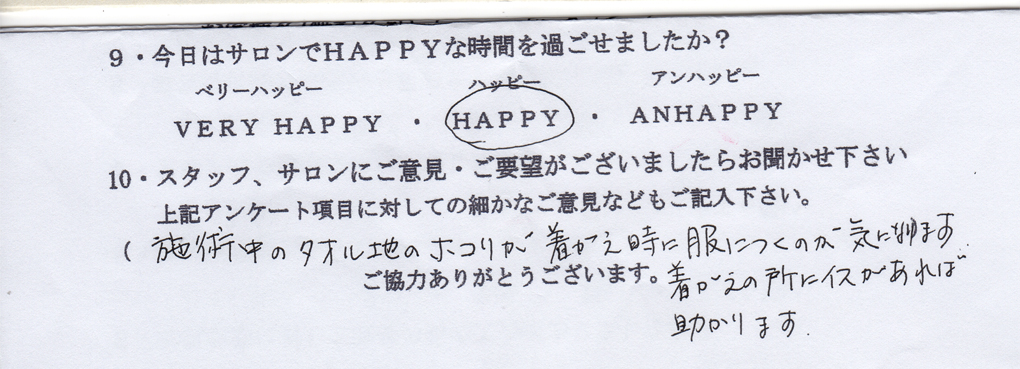 9・今日はサロンでHAPPYな時間を過ごせましたか？
ベリーハッピー ハッピー アンハッピー
VERY HAPPY ・ HAPPY ・ ANHAPPY
10・スタッフ、サロンにご意見・ご要望がございましたらお聞かせ下さい
上記アンケート項目に対しての細かなご意見などもご記入下さい。
( 施術中のタオル地のホコリが着がえ時に服につくのが気になります
ご協力ありがとうございます。
着がえの所にイスがあれば
助かります.